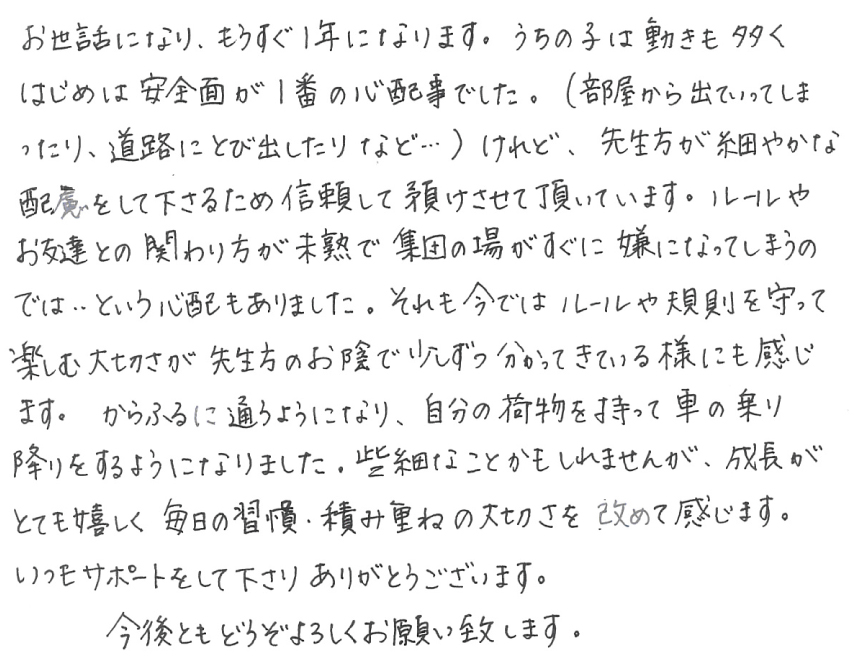 お世話になり、もうすぐ1年になります。うちの子は動きも多く
はじめは安全面が1番の心配事でした。(部屋から出ていってしま
ったり、道路にとび出したりなど…)けれど、先生方が細やかな
配慮をして下さるため信頼して預けさせて頂いています。ルールや
お友達との関わり方が未熟で集団の場がすぐに嫌になってしまうの
では‥という心配もありました。それも今ではルールや規則を守って
楽しむ大切さが先生方のお陰で少しずつ分かってきている様にも感じ
ます。からふるに通うようになり、自分の荷物を持って車の乗り
降りをするようになりました。些細なことかもしれませんが、成長が
とても嬉しく毎日の習慣・積み重ねの大切さを改めて感じます。
いつもサポートをして下さりありがとうございます。
今後ともどうぞよろしくお願い致します。